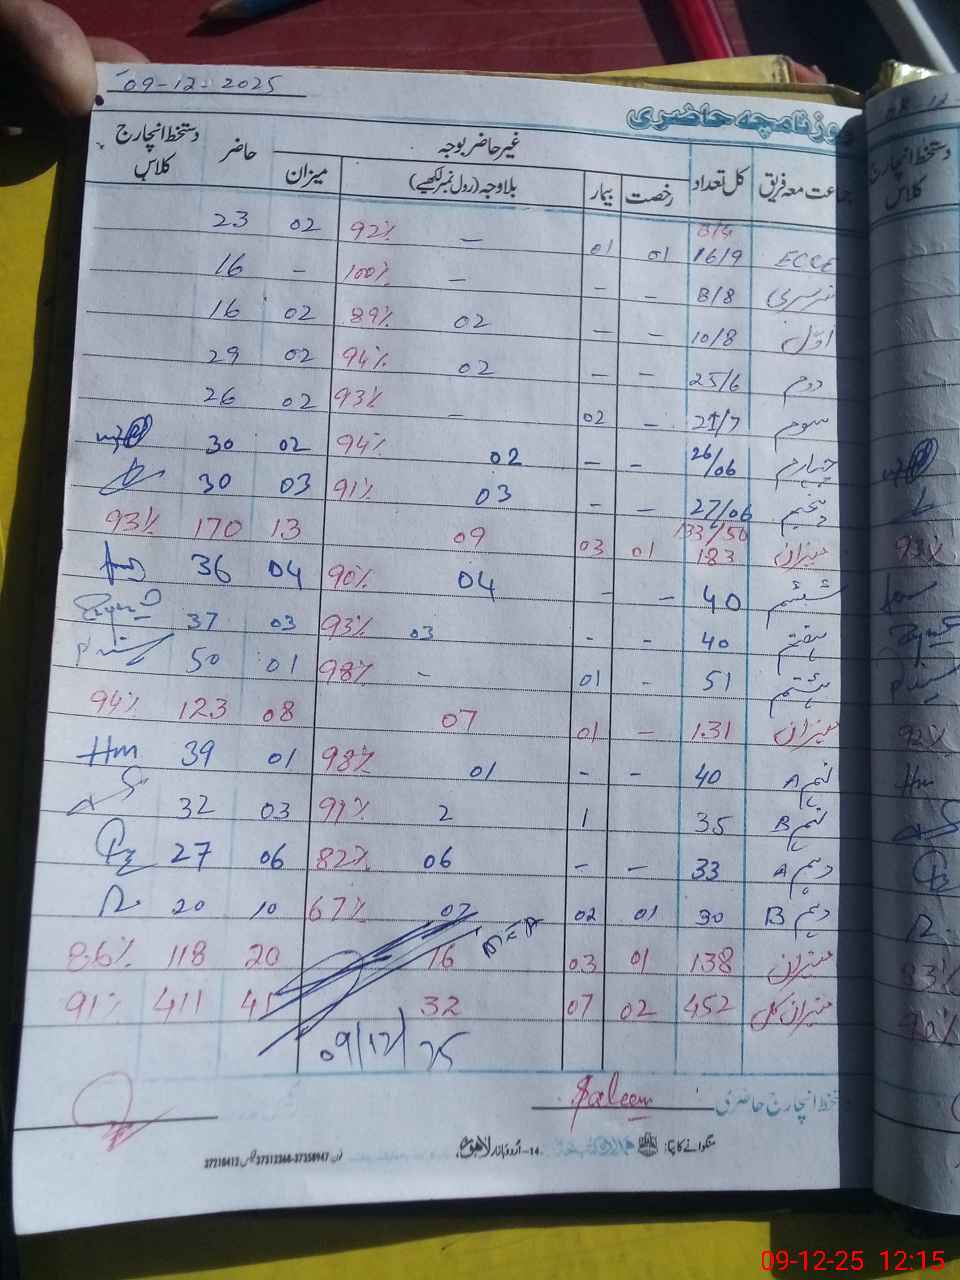 09-12-2025
روزنامچہ حاضری
جماعت معہ فریق کل تعداد رخصت بیمار غیر حاضر بوجہ بلاوجہ (رول نمبر لکھیے) میزان حاضر دستخط انچارج کلاس
B/G
ECCE 16/9 01 01 — 92% 02 23
نرسری 8/8 — — — 100% — 16
اوّل 10/8 — — 02 89% 02 16
دوم 25/6 — — 02 94% 02 29
سوم 21/7 — 02 — 93% 02 26
چہارم 26/06 — — 02 94% 02 30
پنجم 27/06 — — 03 91% 03 30
میزان 133/50 183 01 03 09 13 170 93%
ششم 40 — — 04 90% 04 36
ہفتم 40 - - 03 93% 03 37
ہشتم 51 - 01 - 98% 01 50
میزان 131 — 01 07 08 123 94%
نہم A 40 - - 01 98% 01 39 Hm
نہم B 35 1 2 91% 03 32
دہم A 33 — — 06 82% 06 27
دہم B 30 01 02 07 67% 10 20
میزان 138 01 03 16 20 118 86%
میزان کل 452 02 07 32 41 411 91%
09/12/25
دستخط انچارج حاضری Saleem
منگوانے کا پتا: 14-اُردو بازار لاہور فون 37313368-37358947 فیکس 37310412
09-12-25 12:15